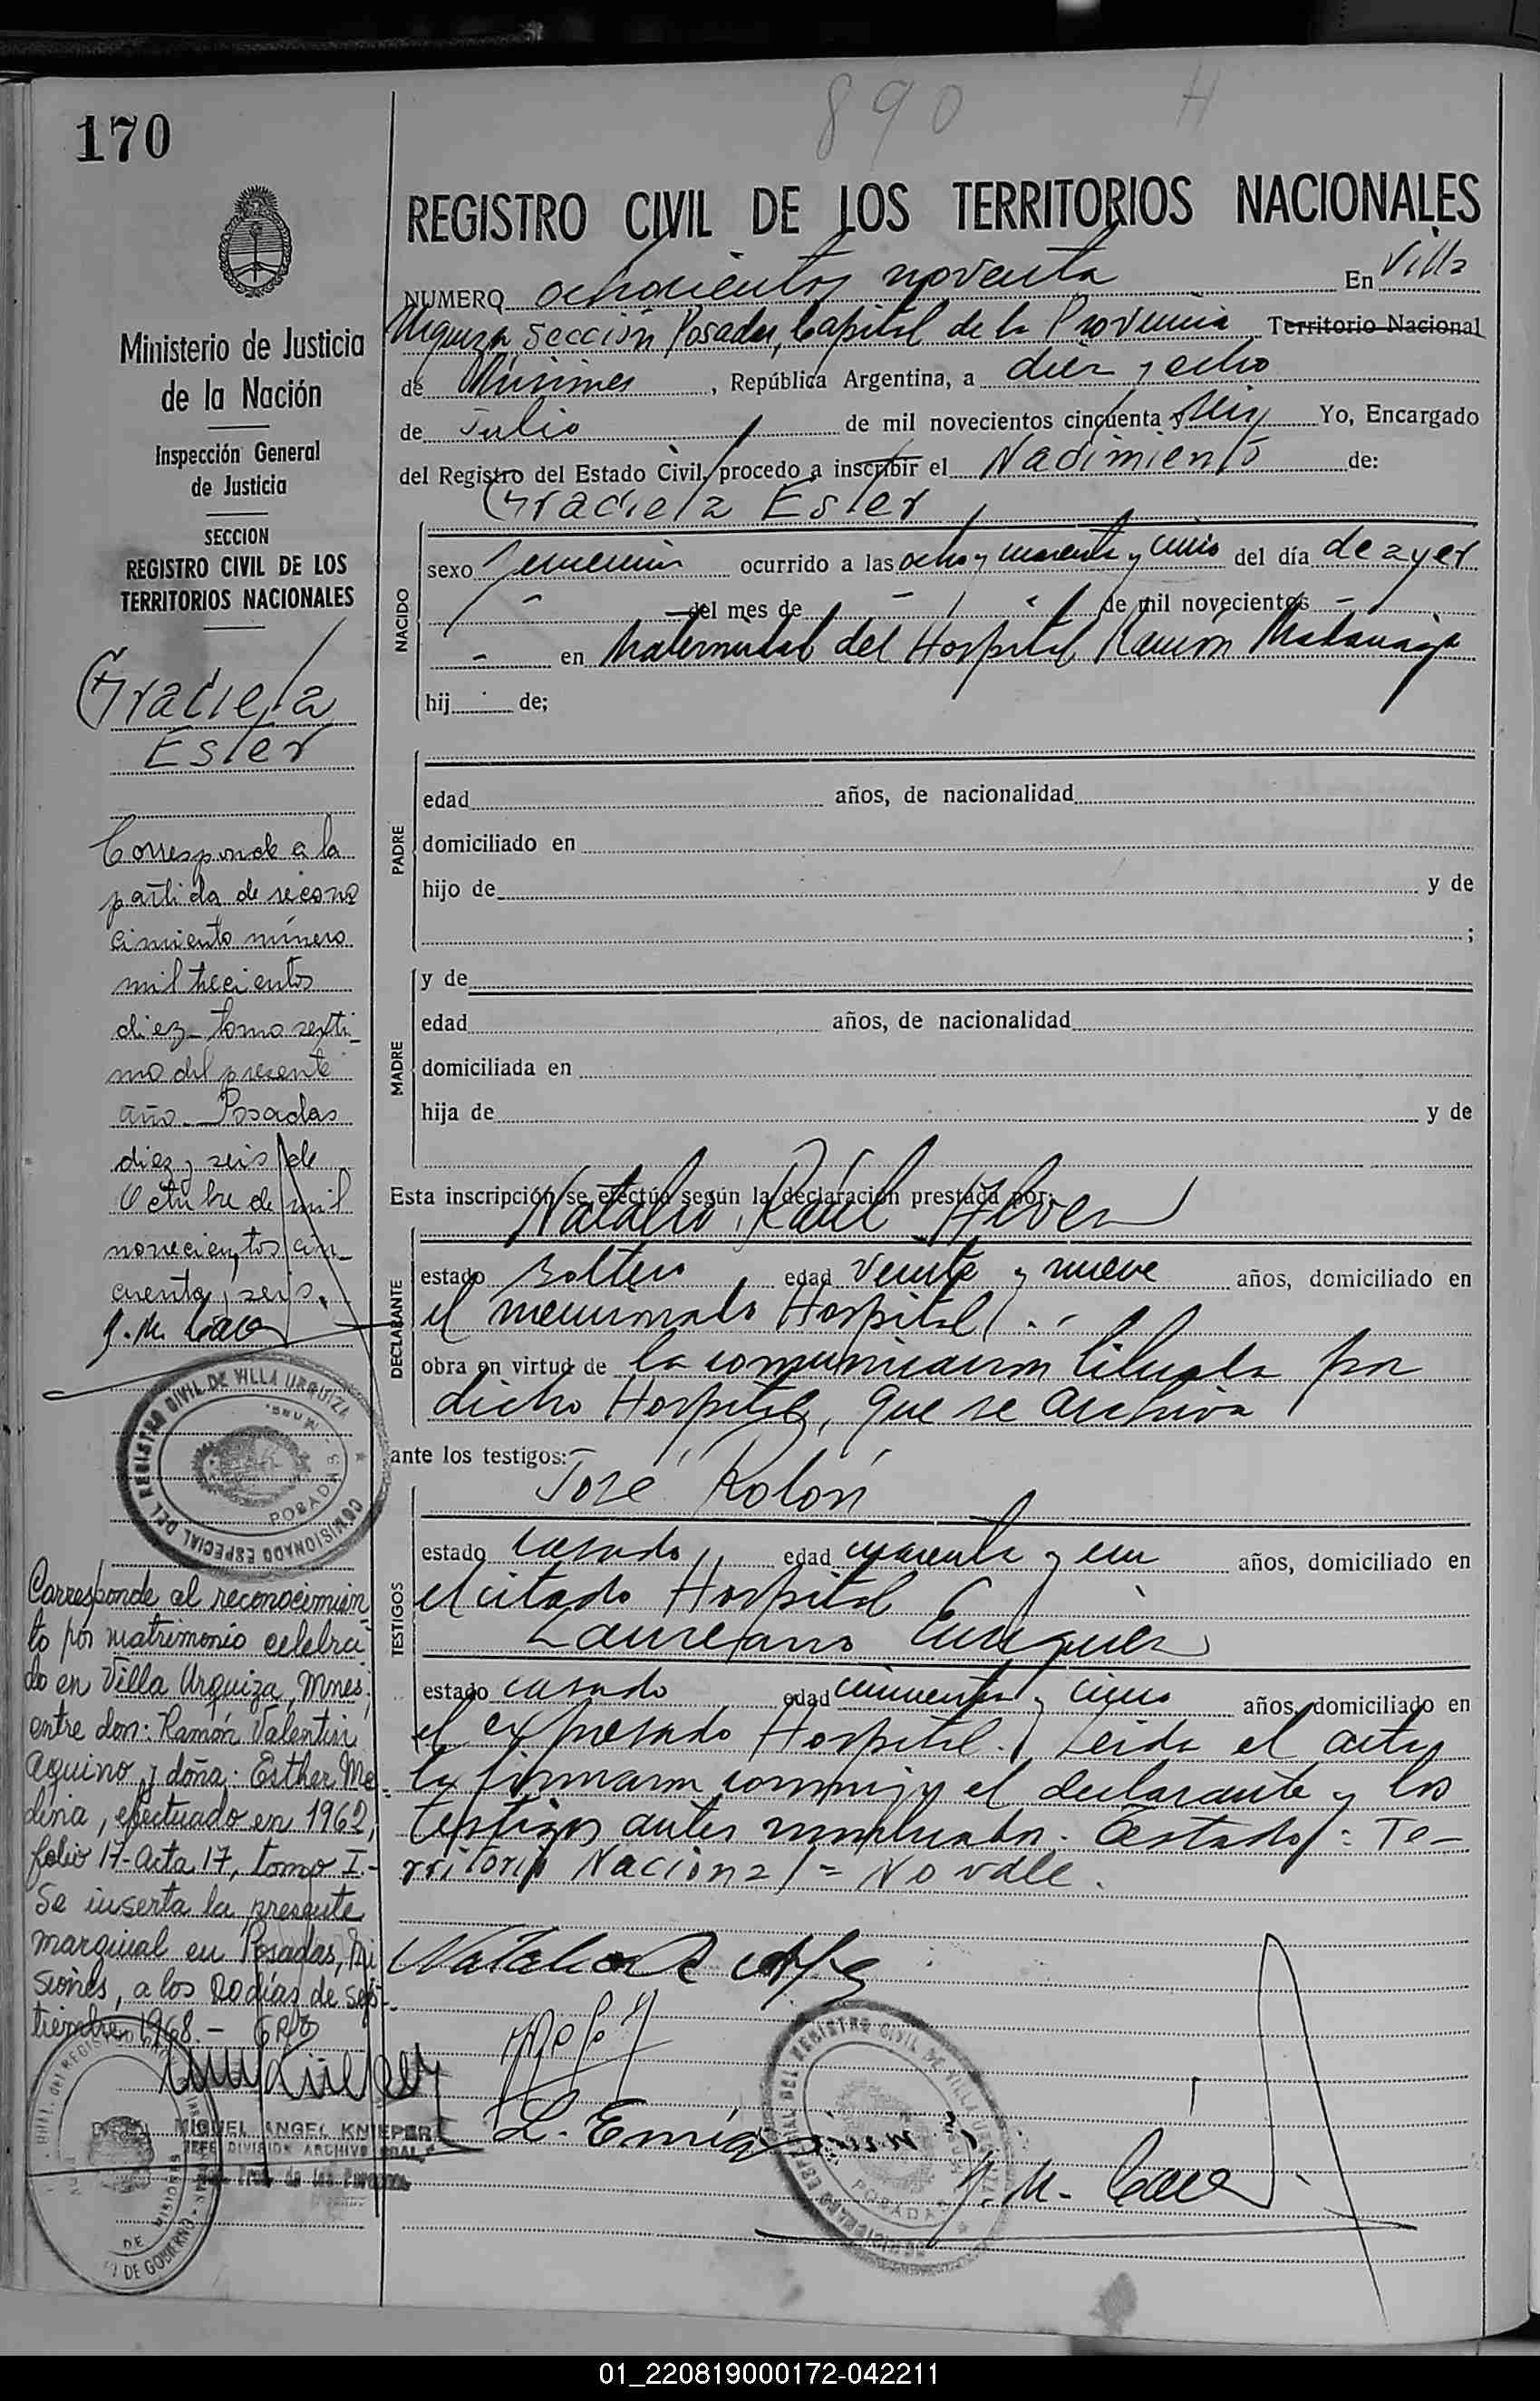 890 H
170
REGISTRO CIVIL DE LOS TERRITORIOS NACIONALES
NUMERO ochocientos noventa En Villa
Urquiza Sección Posadas, Capital de la Provincia Territorio Nacional
de Misiones, República Argentina, a diez y ocho
de Julio de mil novecientos cincuenta y seis Yo, Encargado
del Registro del Estado Civil, procedo a inscribir el Nacimiento de:
Graciela Ester
NACIDO
sexo femenino ocurrido a las ocho y cuarenta y cinco del día de ayer
del mes de de mil novecientos
en Maternidad del Hospital Ramón Madariaga
hij de;
PADRE
edad años, de nacionalidad
domiciliado en
hijo de y de
;
MADRE
y de
edad años, de nacionalidad
domiciliada en
hija de y de
Esta inscripción se efectúa según la declaración prestada por:
Natalio Raúl
DECLARANTE
estado soltero edad veinte y nueve años, domiciliado en
el mencionado Hospital
obra en virtud de la comunicación librada por
dicho Hospital, que se archiva
ante los testigos:
José Rolón
TESTIGOS
estado casado edad cuarenta y un años, domiciliado en
el citado Hospital
Laureano
estado casado edad cincuenta y cinco años, domiciliado en
el expresado Hospital. Leida el acta
la firmaron conmigo el declarante y los
testigos antes nombrados. Testado: Te-
rritorio Nacional = No vale.
L.
J. M.
Ministerio de Justicia
de la Nación
Inspección General
de Justicia
SECCION
REGISTRO CIVIL DE LOS
TERRITORIOS NACIONALES
Graciela
Ester
Corresponde a la
partida de recono
cimiento número
mil trecientos
diez tomo septi-
mo del presente
año. Posadas
diez y seis de
Octubre de mil
novecientos cin-
cuenta y seis.
J. M.
COMISIONADO ESPECIAL DEL REGISTRO CIVIL DE VILLA URQUIZA
POSADAS - MNES.
Corresponde al reconocimien-
to por matrimonio celebra-
do en Villa Urquiza, Mnes;
entre don: Ramón Valentin
Aquino y doña: Esther Me-
dina, efectuado en 1962,
folio 17- Acta 17, tomo I.-
Se inserta la presente
marginal en Posadas, Mi
siones, a los 20 días de sep-
tiembre 1968.-
MIGUEL ANGEL KNIEPER
JEFE DIVISION ARCHIVO GRAL.
Prov. de las Personas
DE GOBIERNO
MISIONES
COMISIONADO ESPECIAL DEL REGISTRO CIVIL DE VILLA URQUIZA
POSADAS
01_220819000172-042211